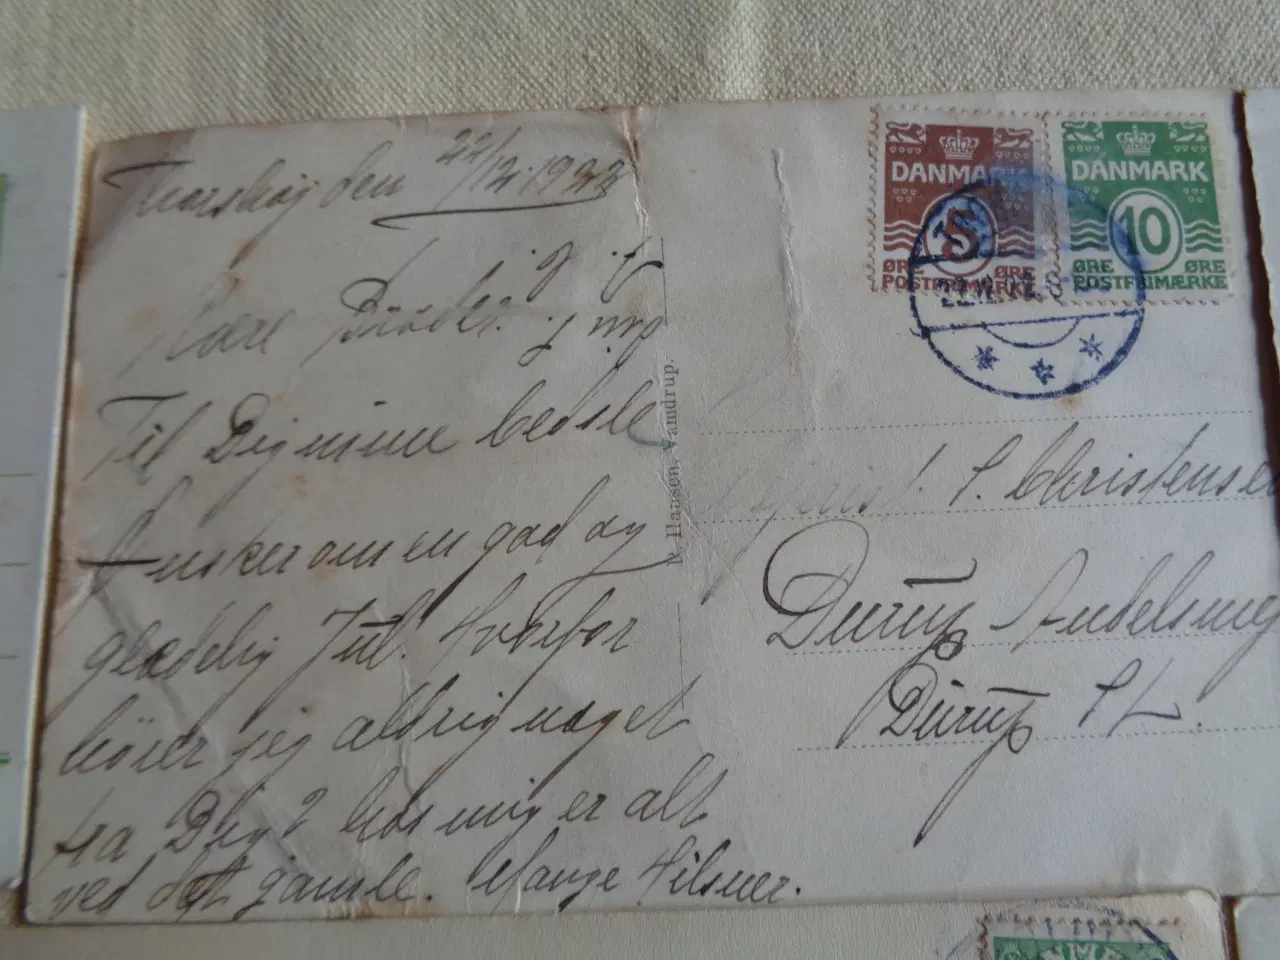 den 22/12. 1923
Kære
Til Dig mine bedste
Ønsker om en god og
glædelig Jul. Hvorfor
hører jeg aldrig noget
fra Dig? hos mig er alt
ved det gamle. Mange Hilsner.
Hansen, Vamdrup.
DANMARK
5
ØRE ØRE
POSTFRIMÆRKE
DANMARK
10
ØRE ØRE
POSTFRIMÆRKE
S. Christensen
Durup Andelsmej
Durup St.